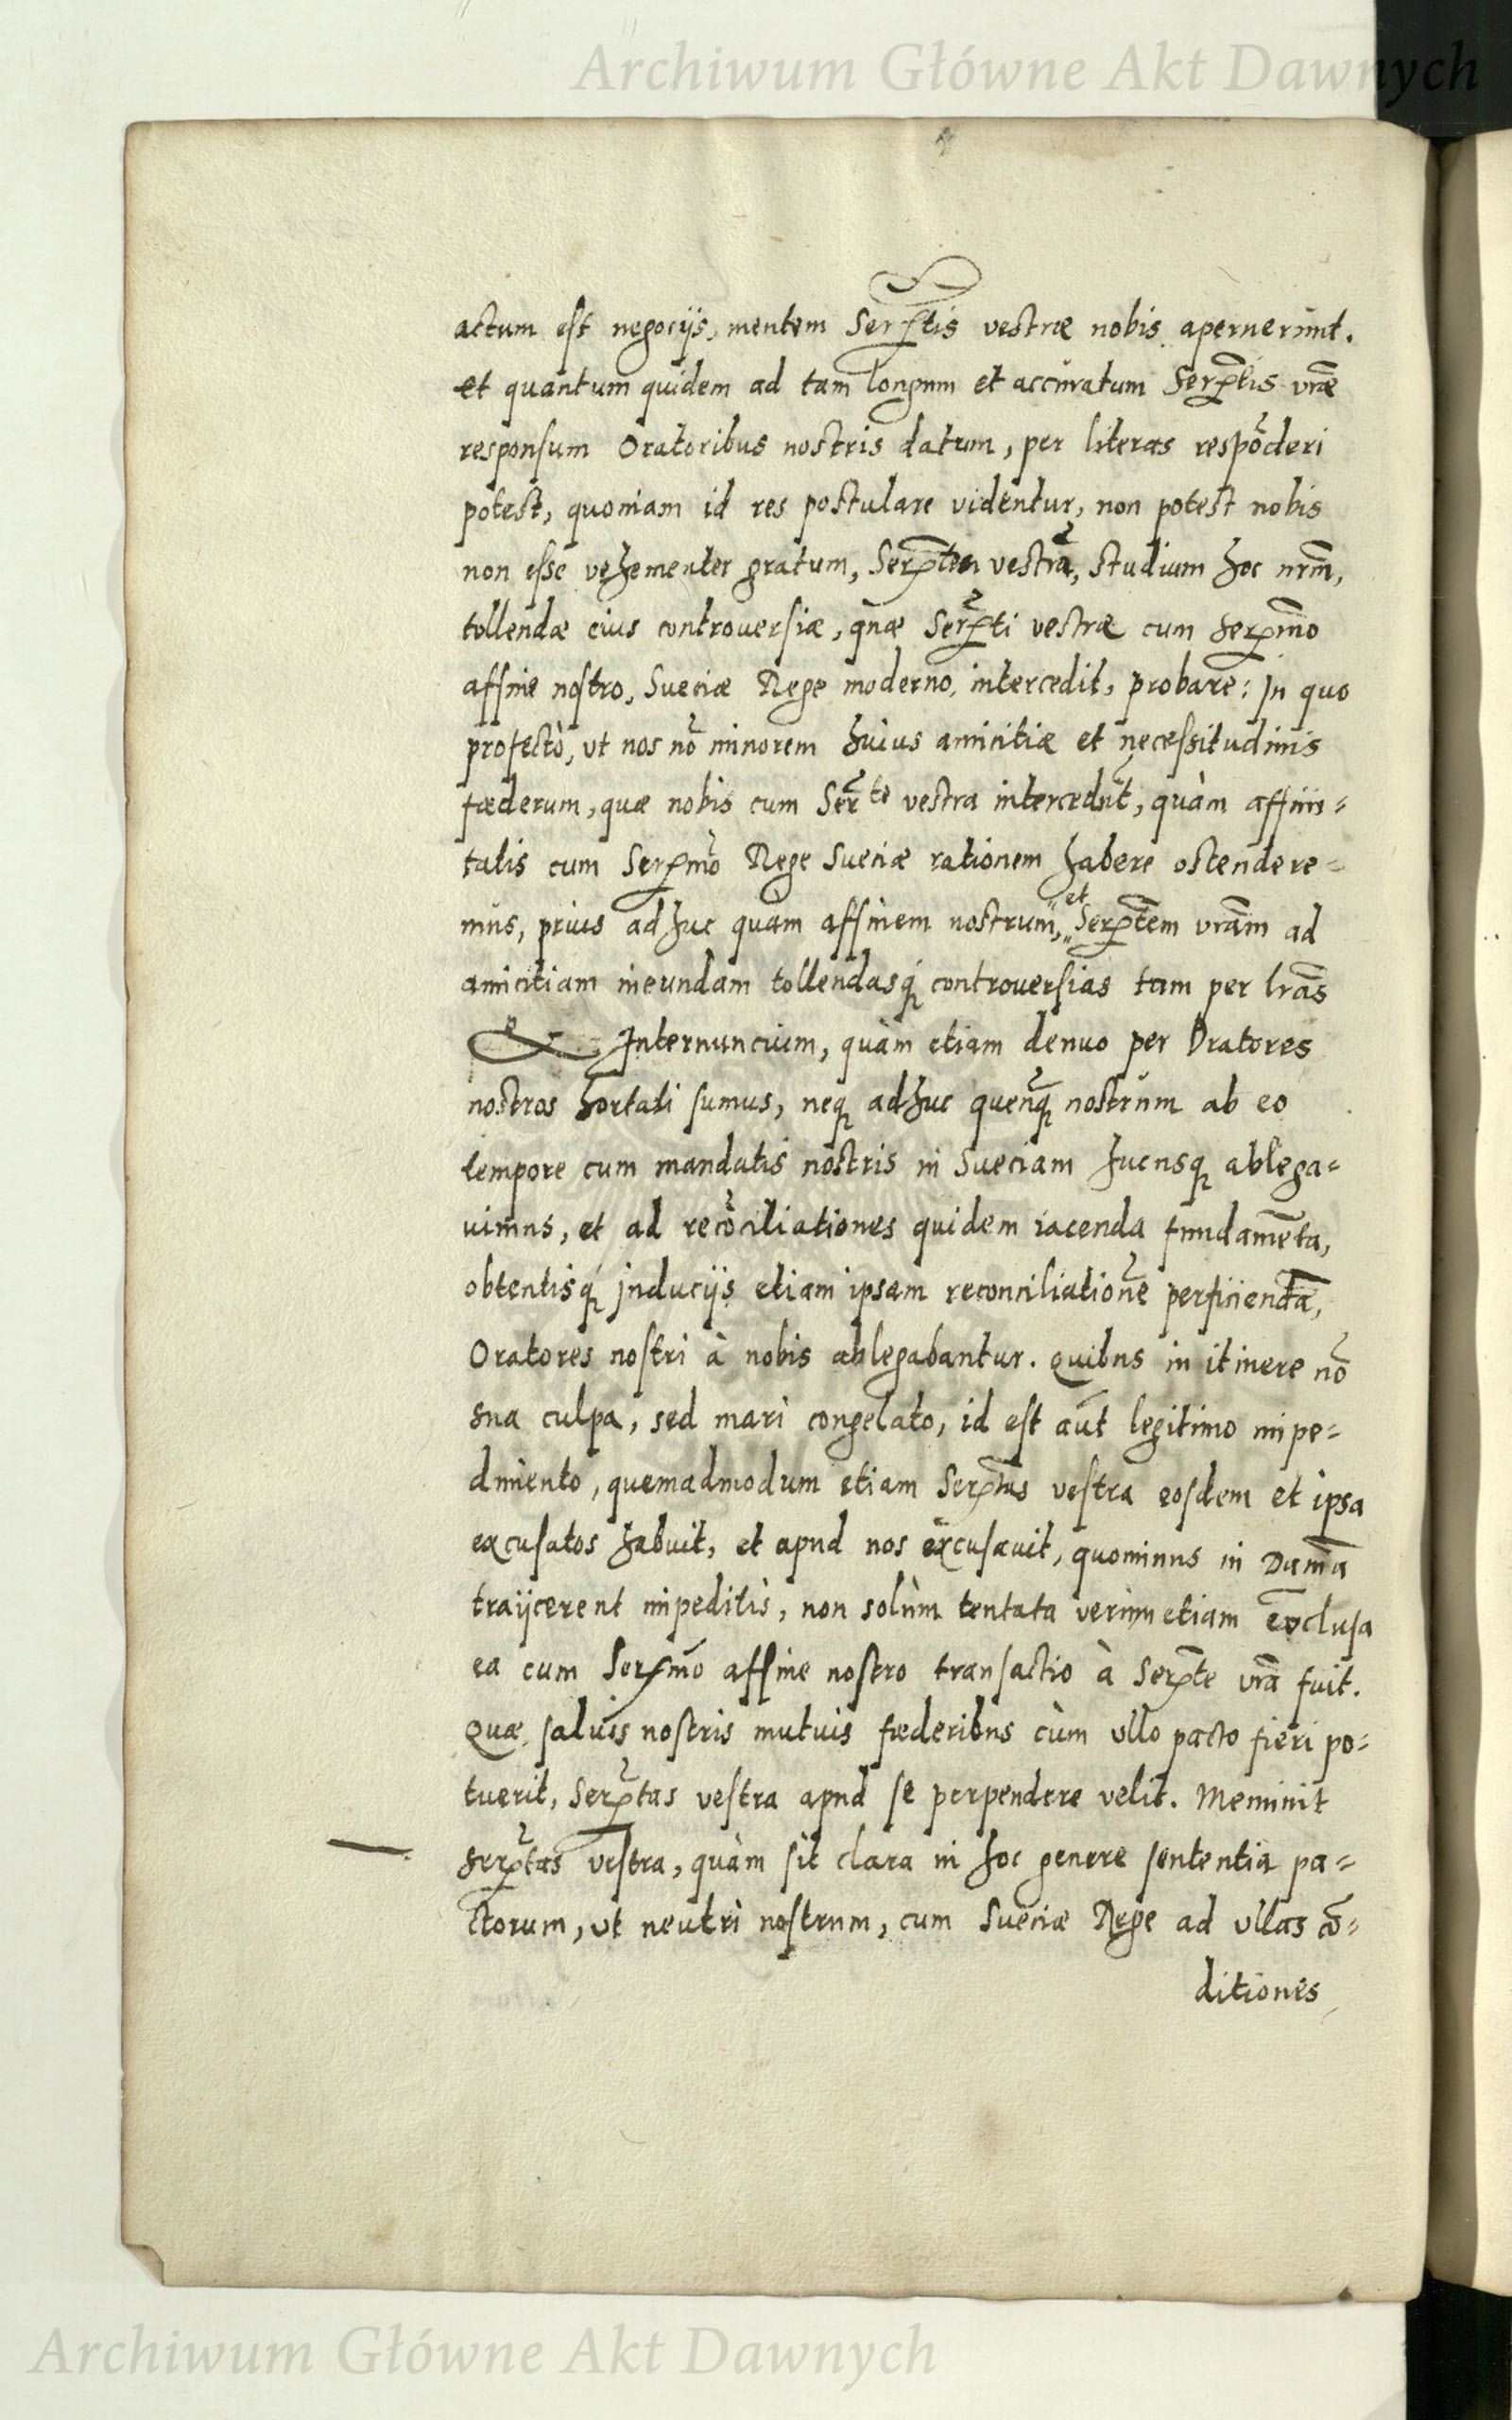 Archiwum Główne Akt Dawnych
actum est negocijs, mentem Serp̃tis vestræ nobis aperuerunt.
et quantum quidem ad tam longum et accuratum Serp̃tis vr̃æ
responsum Oratoribus nostris datum, per literas respõderi
potest, quoniam id res postulare videntur, non potest nobis
non esse vehementer gratum, Serp̃tem vestrã, studium hoc nr̃m,
tollendæ eius controuersiæ, quæ Serp̃ti vestræ cum serp̃mo
affine nostro, Sueciæ Rege moderno, intercedit, probare: In quo
profectò, vt nos nõ minorem huius amicitiæ et necessitudinis
fœderum, quæ nobis cum Ser̃te vestra intercedũt, quàm affini=
tatis cum Serp̃mo Rege Sueciæ rationem habere ostendere=
mus, prius adhuc quàm affinem nostrum, et Serp̃tem vrãm ad
amicitiam ineundam tollendasq́ controuersias tam per lrãs
& Internuncium, quàm etiam denuo per Oratores
nostros hortati sumus, neq adhuc quenq̃ nostrum ab eo
tempore cum mandatis nostris in Sueciam hucusq ablega=
uimus, et ad recõciliationes quidem iacenda fundamẽta,
obtentisq́ inducijs etiam ipsam reconciliationẽ perficiendã,
Oratores nostri à nobis ablegabantur. Quibus in itinere nõ
sua culpa, sed mari congelato, id est aũt legitimo impe=
dimento, quemadmodum etiam Serp̃tas vestra eosdem et ipsa
excusatos habuit, et apud nos excusauit, quominus in Daniã
traijcerent impeditis, non solùm tentata verùm etiam exclusa
ea cum Serp̃mo affine nostro transactio à Serp̃te vrã fuit.
Quæ saluis nostris mutuis fœderibus cùm vllo pacto fieri po=
tuerit, Serp̃tas vestra apud se perpendere velit. Meminit
serp̃tas vestra, quàm sit clara in hoc genere sententia pa=
ctorum, vt neutri nostrum, cum Sueciæ Rege ad vllas cõ=
ditiones
Archiwum Główne Akt Dawnych